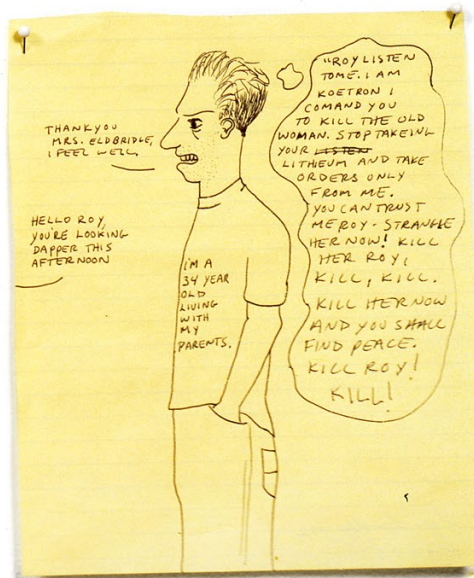 THANKYOU
MRS. ELDBRIDGE,
I FEEL WELL.
HELLO ROY,
YOU'RE LOOKING
DAPPER THIS
AFTERNOON
I'M A
34 YEAR
OLD
LIVING
WITH
MY
PARENTS.
"ROY LISTEN
TO ME. I AM
KOETRON I
COMAND YOU
TO KILL THE OLD
WOMAN. STOP TAKEING
YOUR LISTEN
LITHEUM AND TAKE
ORDERS ONLY
FROM ME.
YOU CAN TRUST
ME ROY - STRANGLE
HER NOW! KILL
HER ROY,
KILL, KILL.
KILL HER NOW
AND YOU SHALL
FIND PEACE.
KILL ROY!
KILL!